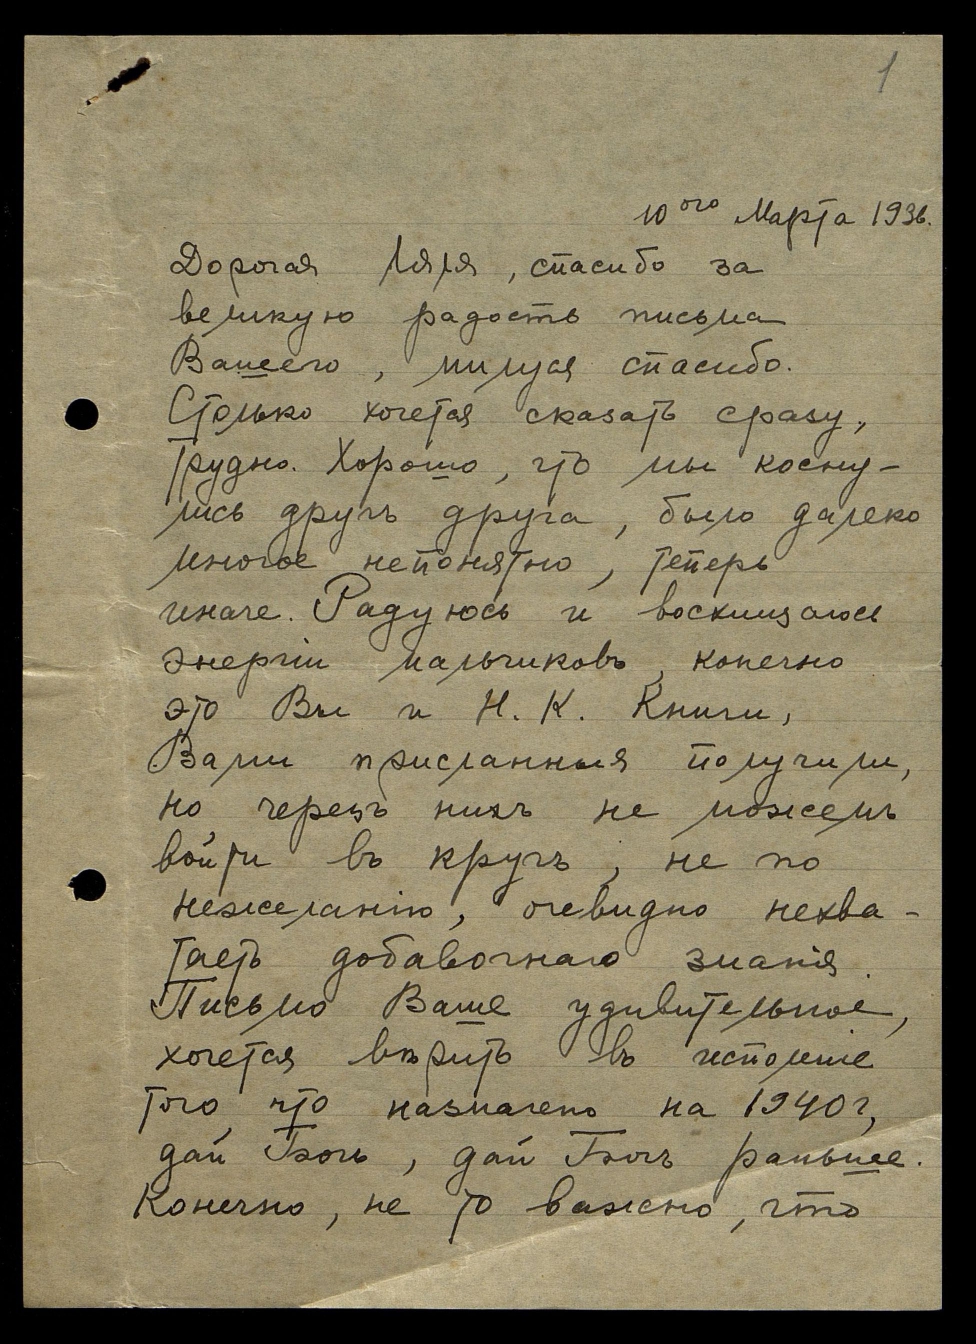 1
10ого Марта 1936.
Дорогая Ляля, спасибо за
великую радость письма
Вашего, милуся спасибо.
Столько хочется сказать сразу,
трудно. Хорошо, что мы косну-
лись другъ друга, было далеко
многое непонятно, теперь
иначе. Радуюсь и восхищаюсь
энергіи мальчиковъ, конечно
это Вы и Н. К. Книги,
Вами присланныя получили,
но черезъ нихъ не можемъ
войти въ кругъ, не по
нежеланію, очевидно нехва-
таетъ добавочнаго знанія.
Письмо Ваше удивительное,
хочется вѣрить въ исполніе
того что назначено на 1940 г,
дай Богъ, дай Богъ раньше.
Конечно, не то важно, что